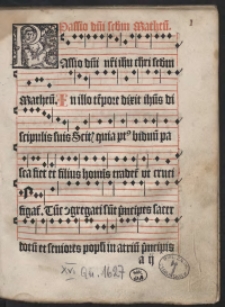 Passio dñi secũm Matheũ.
Passio dñi nr̃i ihũ chri secũm
Matheũ. In illo tẽpore dixit ihũs di
scipulis suis Scitꝭ quia pꝰ biduũ pa
sca fiet et filius homĩs tradetʳ ut cruci
figaťʳ. Tũc ꝯgregati sũt p̃ncipes sacer
dotũ et seniores popĩi in atriũ p̃ncipis
a ij
XV. Qu. 1627